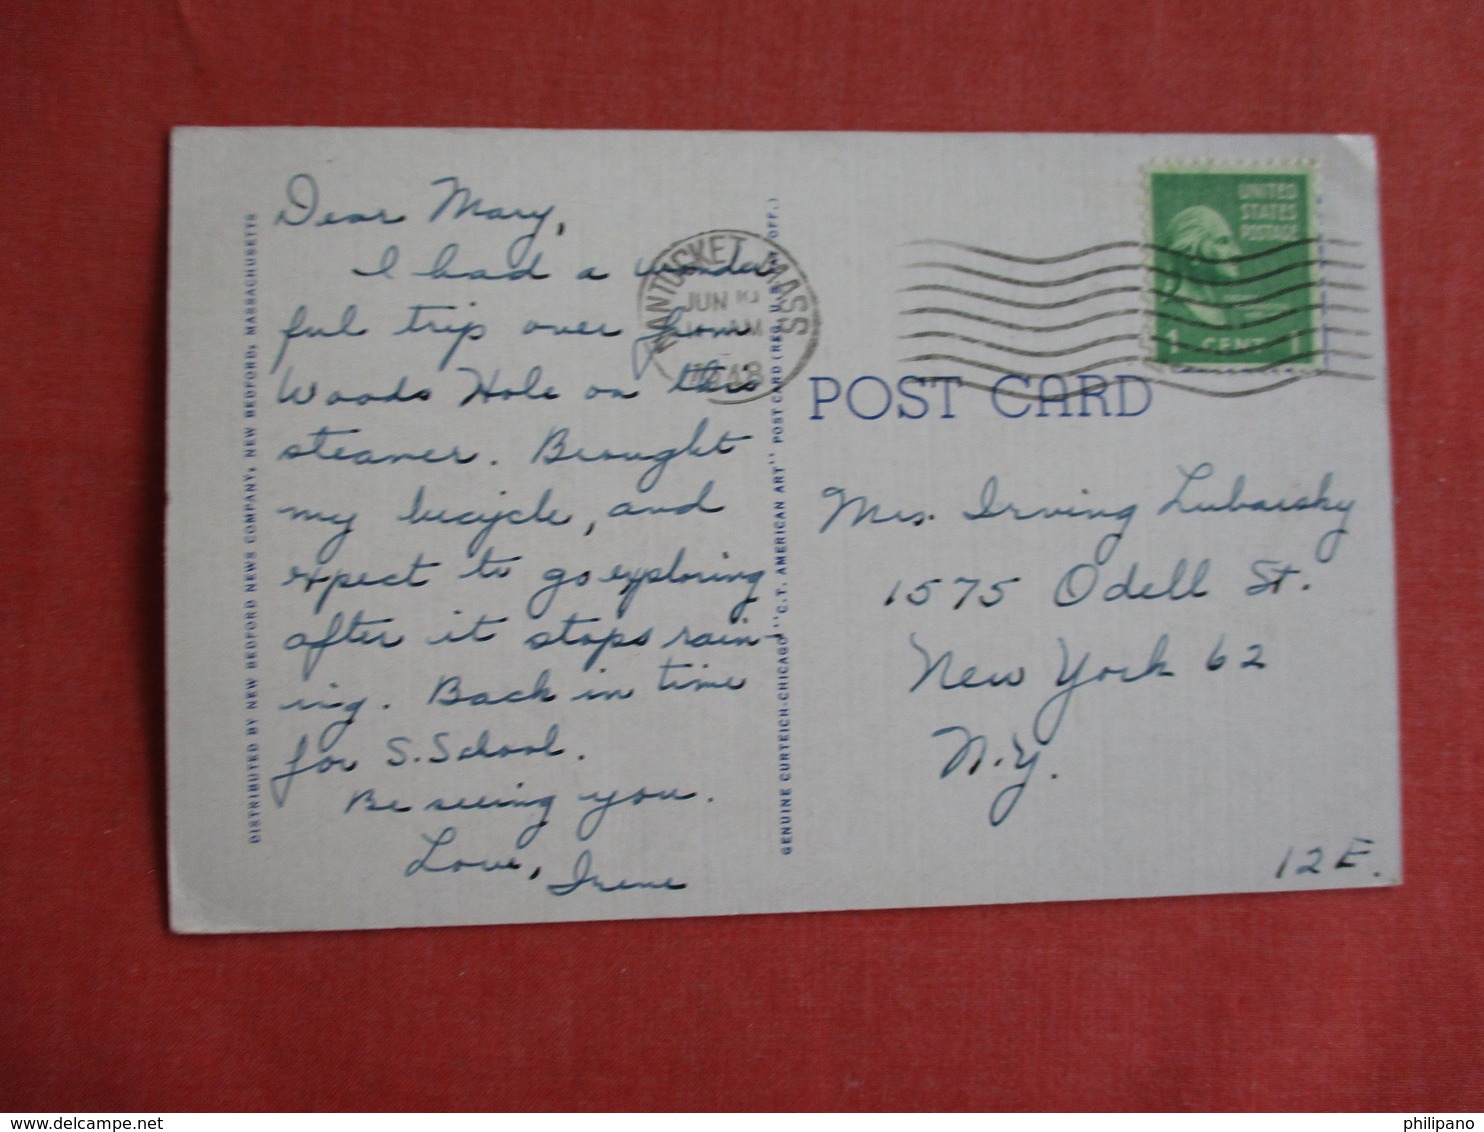 Dear Mary,
I had a wonder-
ful trip over from
Woods Hole on this
steamer. Brought
my bicycle, and
expect to go exploring
after it stops rain-
ing. Back in time
for S. School.
Be seeing you.
Love, Irene
DISTRIBUTED BY NEW BEDFORD NEWS COMPANY, NEW BEDFORD, MASSACHUSETTS
GENUINE CURTEICH-CHICAGO "C.T. AMERICAN ART" POST CARD (REG. U.S. OFF.)
NANTUCKET MASS
JUN
AM
1948
UNITED
STATES
POSTAGE
1 CENT 1
POST CARD
Mrs. Irving Lubarsky
1575 Odell St.
New York 62
N.Y.
12E.
delcampe.net
philipano